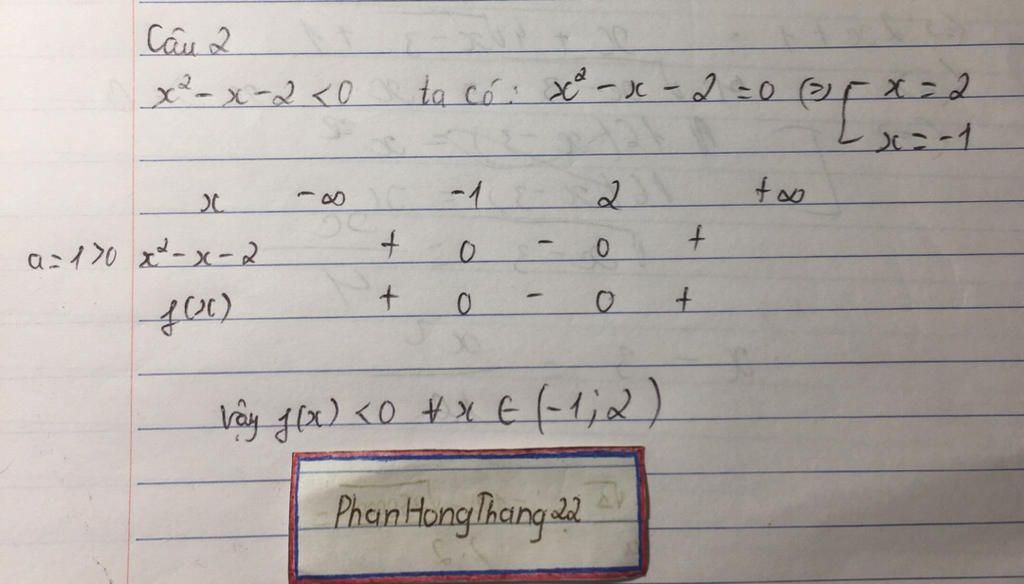 Câu 2
x² - x - 2 < 0 ta có: x² - x - 2 = 0 (=) [ x = 2
x = -1
x -∞ -1 2 +∞
a = 1 > 0 x² - x - 2 + 0 - 0 +
f(x) + 0 - 0 +
Vậy f(x) < 0 ∀ x ∈ (-1; 2)
PhanHongThang22